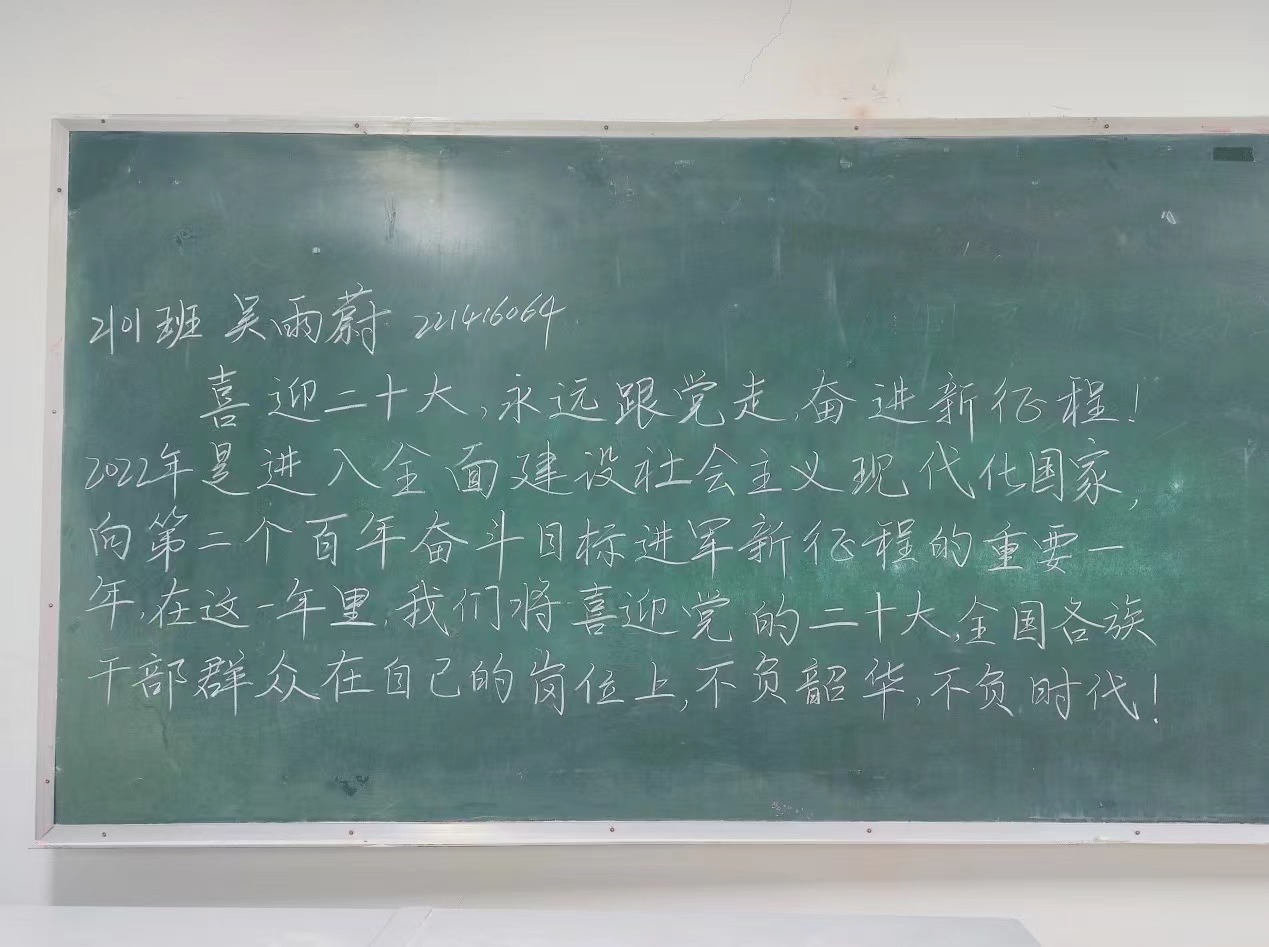 2101班 吴雨蔚 221416064
喜迎二十大,永远跟党走,奋进新征程!
2022年是进入全面建设社会主义现代化国家,
向第二个百年奋斗目标进军新征程的重要一
年,在这一年里,我们将喜迎党的二十大,全国各族
干部群众在自己的岗位上,不负韶华,不负时代!